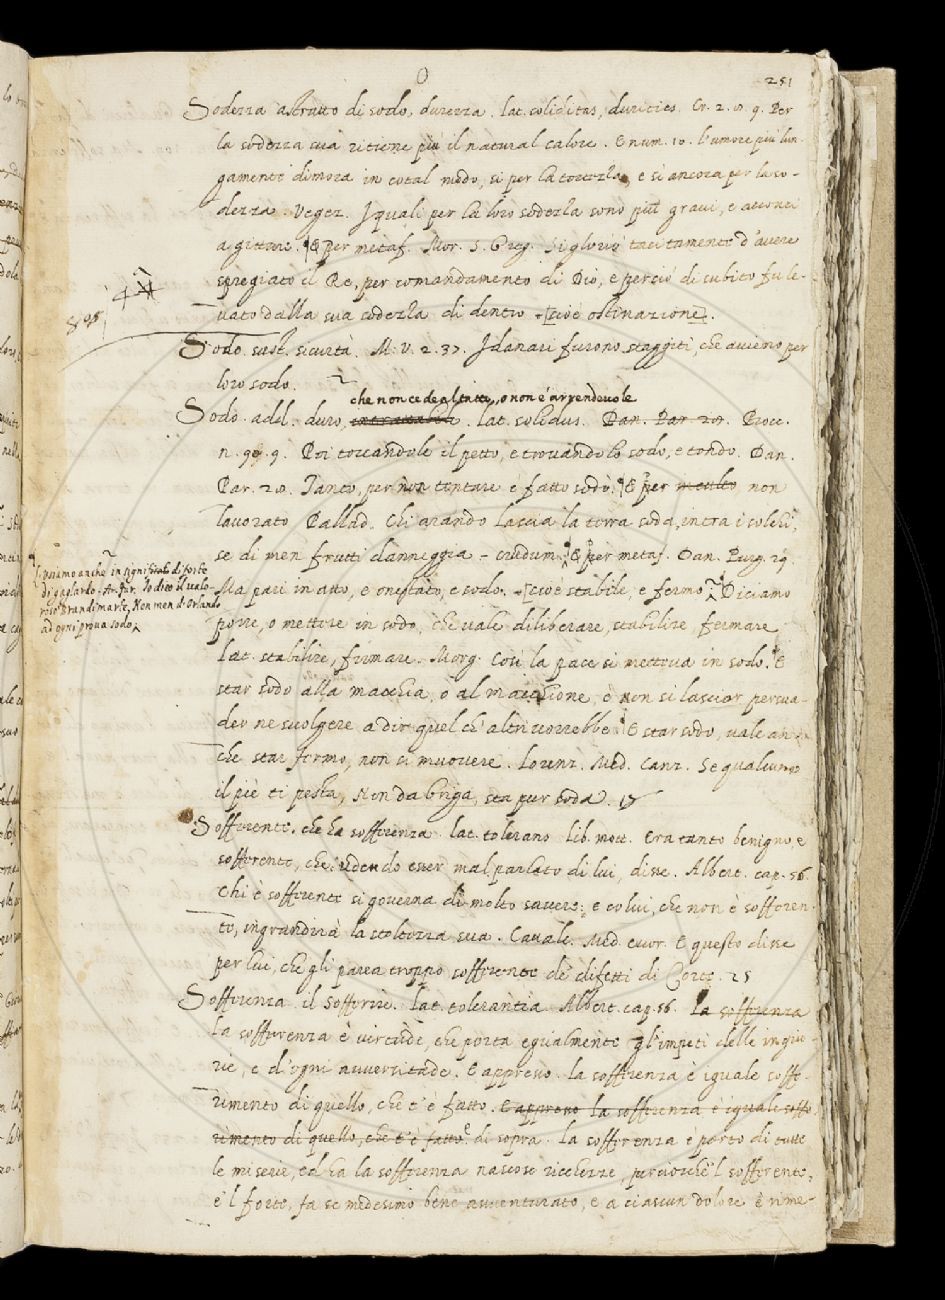 251
Sodezza astratto di sodo, durezza. lat. soliditas, durities. Cr. 2. 18. 9. Per
la sodezza sua ritiene più il natural calore. E num. 10. l'umore più lun-
gamente dimora in cotal modo, si per la , e si ancora per la so-
dezza. Vegez. I quali per la loro sodezza sono più gravi, e acconci
a gittare. E per metaf. Mor. S. Greg. Si gloriò tacitamente d'avere
spregiato il Re, per comandamento di Dio, e perciò di subito fu le-
vato dalla sua sodezza di dentro [cioè ostinazione].
Sodo. sust. sicurtà. M. V. 2. 37. I danari furono staggiti, che avieno per
loro sodo.
che non cede al tatto, o non è arrendevole
Sodo. add. duro, . lat. solidus. Dan. Par. 28. Bocc.
n. 99. 9. Poi toccandole il petto, e trovandolo sodo, e tondo. Dan.
Par. 28. Tanto, per non tentare è fatto sodo. E per non
lavorato Pallad. Chi arando lascia la terra soda intra i solchi,
se di men frutti danneggia. E per metaf. Dan. Purg. 29.
Ma pari in atto, e onestato, e sodo. [cioè stabile, e fermo. Diciamo
porre, o mettere in sodo, che vale diliberare, stabilire, fermare
lat. stabilire, firmare. Morg. Così la pace si metteva in sodo. E
star sodo alla macchia, o al macchione, è non si lasciar persua-
der ne svolgere a dir quel ch'altri vorrebbe. E star sodo, vale an-
che star fermo, non si muovere. Lorenz. Med. Canz. Se qualcuno
il piè ti pesta, Non da briga, sta pur soda.
Usiamo anche in significato di forte
di gagliardo. Ar. Fur. Io dico il valo-
roso Brandimarte, Non men d'Orlando
ad ogni prova sodo.
Sofferente. che ha sofferenza. lat. tolerans. lib. mott. Era tanto benigno, e
sofferente, che udendo esser mal parlato di lui, disse. Albert. cap. 56.
Chi è sofferente si governa di molto savere: e colui, che non è sofferen-
te, ingrandirà la stoltezza sua. Cavalc. Med. cuor. E questo disse
per lui, che gli parea troppo sofferente de' difetti di Corte. 25
Sofferenza. il Sofferire. lat. tolerantia. Albert. cap. 56. La sofferenza
La sofferenza è virtude, che porta egualmente gl'impeti delle ingiu-
rie, e d'ogni avversitade. E appresso. la sofferenza è iguale soffe-
rimento di quello, che t'è fatto. E appresso la sofferenza è iguale soffe-
rimento di quello, che t'è fatto. E di sopra. la sofferenza è porto di tutte
le miserie, ed ha la sofferenza nascose ricchezze, perciocchè 'l sofferente,
e 'l forte, fa se medesimo bene avventurato, e a ciascun dolore è rime-